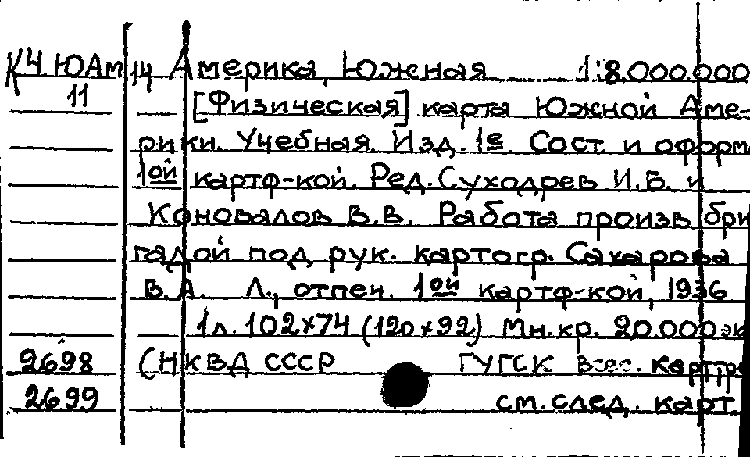 К4 ЮАм 14 Америка Южная 1:8.000.000
11 [Физическая] карта Южной Аме-
рики. Учебная. Изд. 1е Сост. и оформ
1ой картф-кой. Ред. Суходрев И.В. и
Коновалов В.В. Работа произв бри
гадой под рук. картогр. Сахарова
В.А. Л., отпеч. 1ой картф-кой, 1936
1л. 102х74 (120х92) Мн.кр. 20.000 эк
2698 (НКВД СССР ГУГСК Вс
2699 см. след. карт.